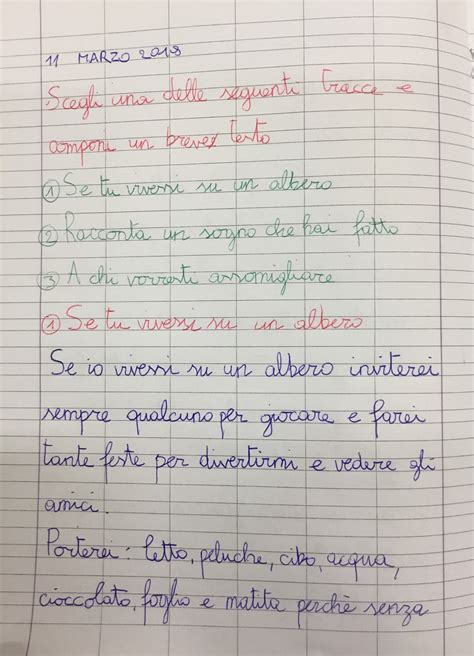 11 MARZO 2018
Scegli una delle seguenti tracce e
componi un breve testo
① Se tu vivessi su un albero
② Racconta un sogno che hai fatto
③ A chi vorresti assomigliare
① Se tu vivessi su un albero
Se io vivessi su un albero inviterei
sempre qualcuno per giocare e farei
tante feste per divertirmi e vedere gli
amici.
Porterei: letto, peluche, cibo, acqua,
cioccolato, foglio e matita perchè senza